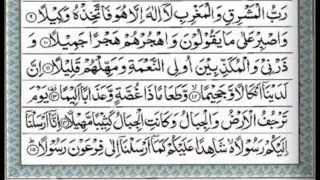 رَبُّ الْمَشْرِقِ وَالْمَغْرِبِ لَا إِلٰهَ إِلَّا هُوَ فَاتَّخِذْهُ وَكِيلًا ۹
وَاصْبِرْ عَلٰى مَا يَقُولُونَ وَاهْجُرْهُمْ هَجْرًا جَمِيلًا ۱۰
وَذَرْنِي وَالْمُكَذِّبِينَ أُولِي النَّعْمَةِ وَمَهِّلْهُمْ قَلِيلًا ۱۱ إِنَّ
لَدَيْنَا أَنْكَالًا وَجَحِيمًا ۱۲ وَطَعَامًا ذَا غُصَّةٍ وَعَذَابًا أَلِيمًا ۱۳ يَوْمَ
تَرْجُفُ الْأَرْضُ وَالْجِبَالُ وَكَانَتِ الْجِبَالُ كَثِيبًا مَهِيلًا ۱۴ إِنَّا أَرْسَلْنَا
إِلَيْكُمْ رَسُولًا شَاهِدًا عَلَيْكُمْ كَمَا أَرْسَلْنَا إِلٰى فِرْعَوْنَ رَسُولًا ۱۵